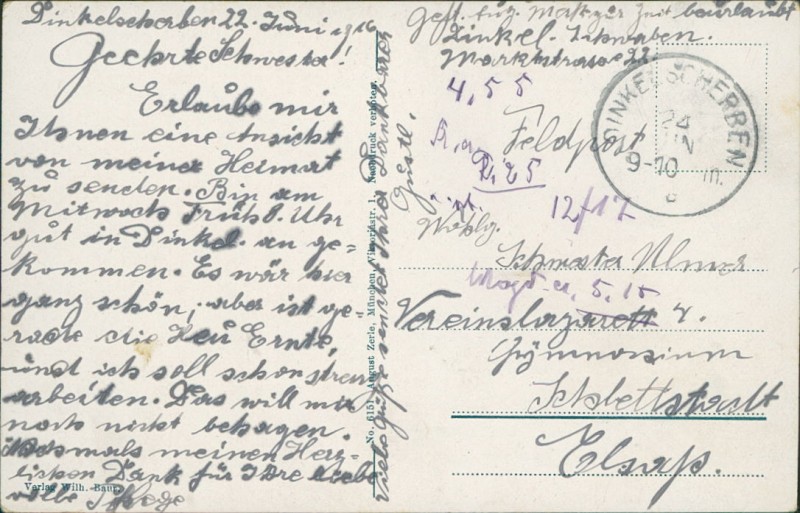 Dinkelscherben 22. Juni 1916
Geehrte Schwester!
Erlaube mir
Ihnen eine Ansicht
von meiner Heimat
zu senden. Bin am
Mittwoch Früh 8. Uhr
gut in Dinkel. an ge=
kommen. Es wär hier
ganz schön, aber ist ge
rade die Heu Ernte,
und ich soll schon streng
arbeiten. Das will mir
noch nicht behagen
nochmals meinen Herz=
lichen Dank für Ihre liebe
volle Pflege
Verlag Wilh. Baur,
Viele Grüße sendet Ihrer Dankbarer
Gustl.
No. 6151 August Zerle, München, Viktoriastr. 1. Nachdruck verboten.
Gefr. Aug. Zeit beurlaubt
Dinkel. Schwaben.
Marktstrasse 22
4,55
Feldpost
DINKELSCHERBEN
24
9-10
m.
c
2.25
12/17
Wohlg.
Schwester Ulmer
5.15
Vereinslazarett 4.
Gymnasium
Schlettstadt
Elsaß.